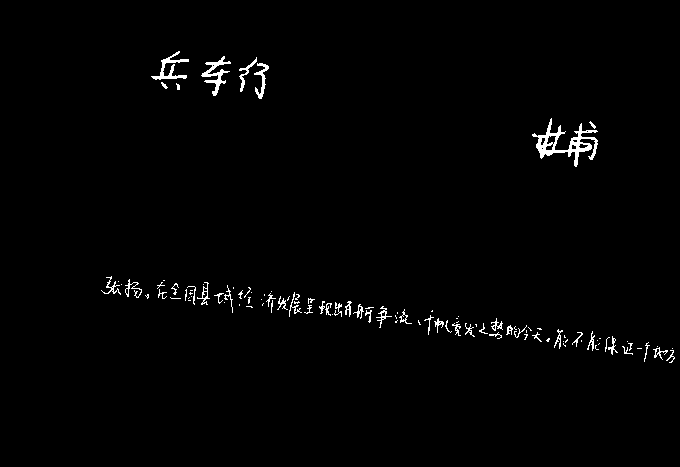 兵车行
杜甫
张扬。在全国县域经济发展呈现出百舸争流、千帆竞发之势的今天,能不能保证一个地方